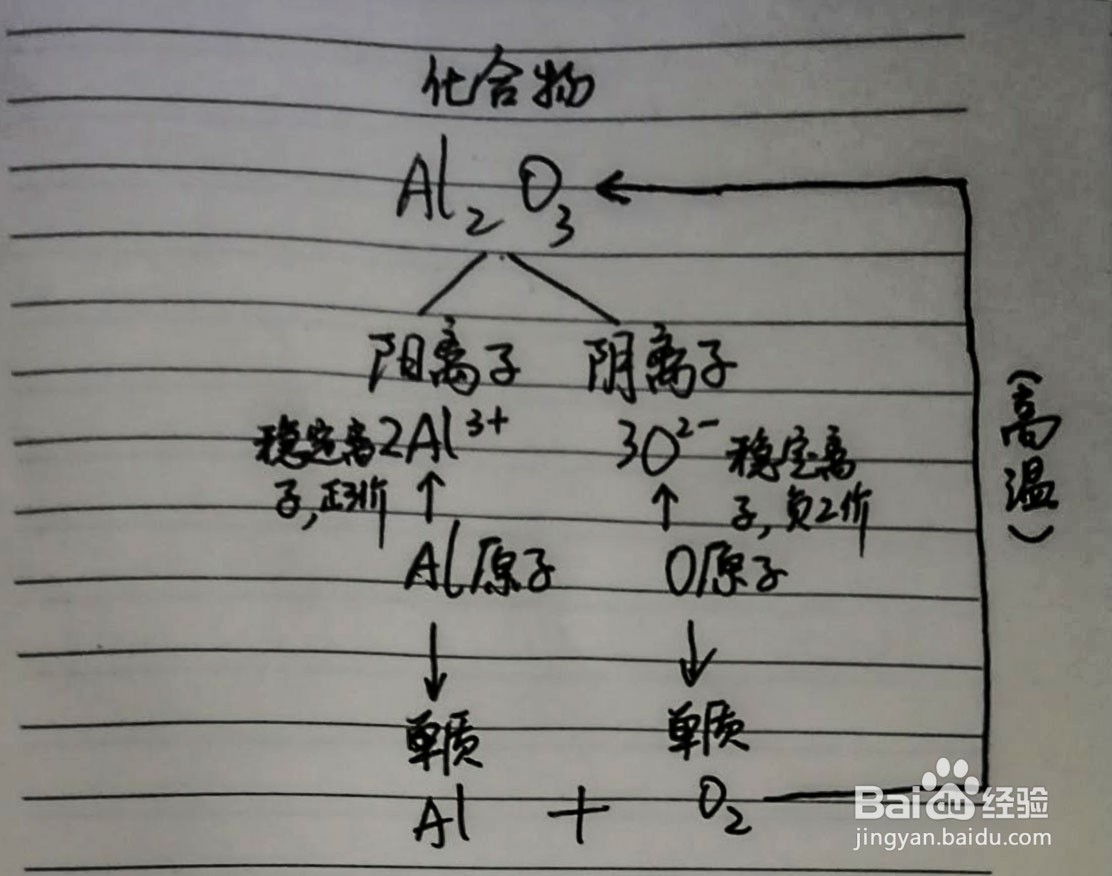 化合物
Al₂O₃
阳离子 阴离子
稳定离 2Al³⁺ 3O²⁻ 稳定离
子,正3价 ↑ ↑ 子,负2价
(高温)
Al原子 O原子
↓ ↓
单质 单质
Al + O₂
Bai du 经验
jingyan.baidu.com